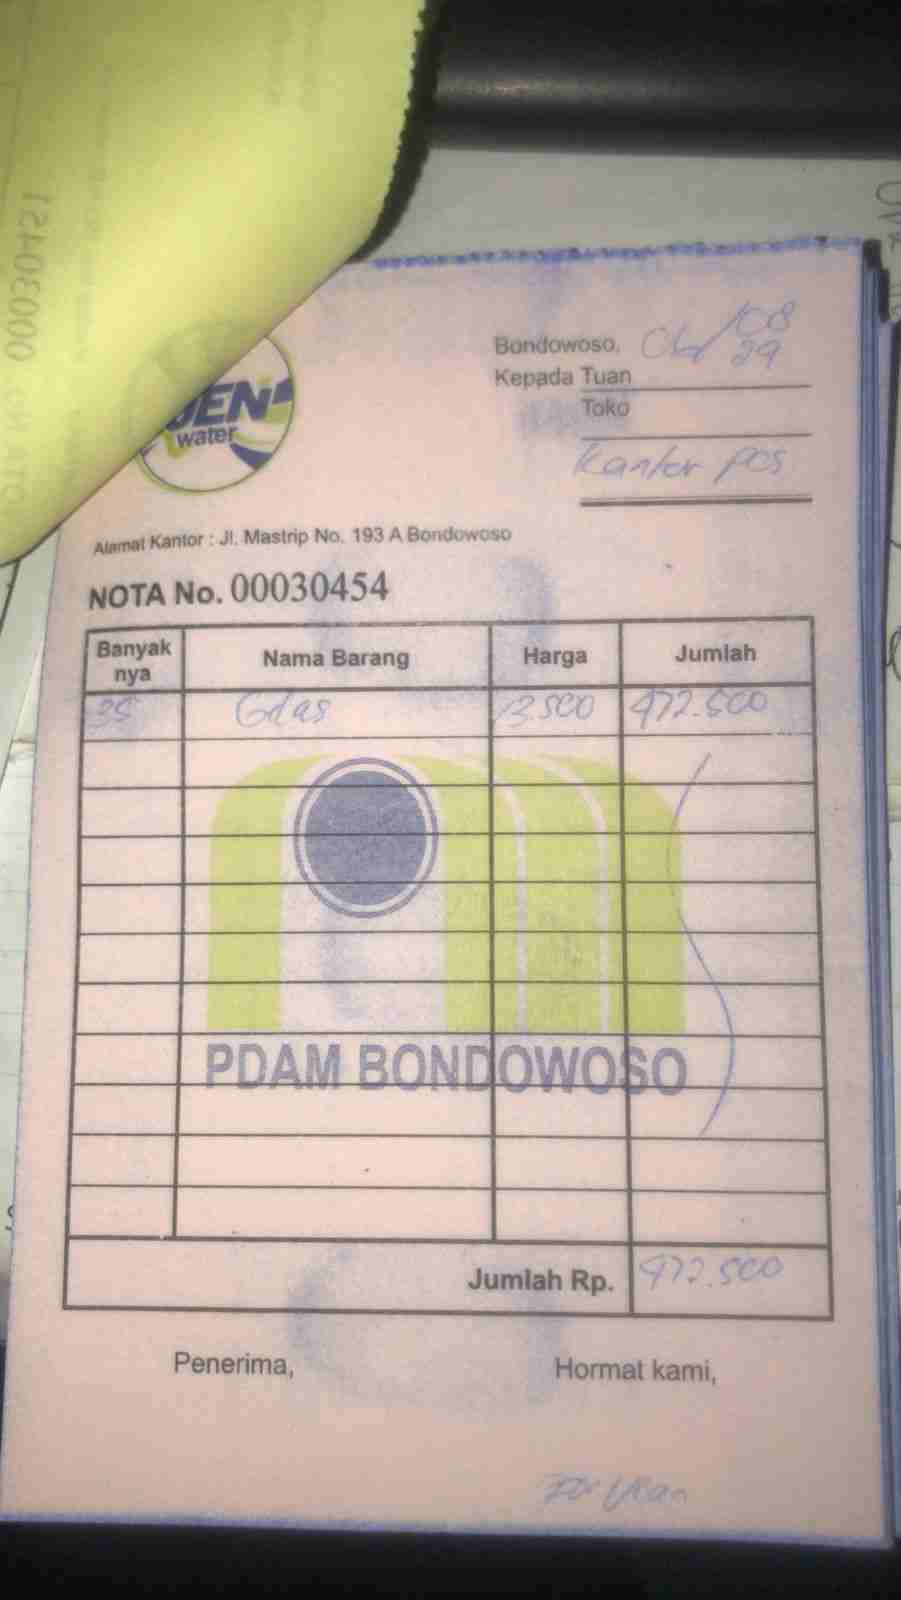 JEN
water
Bondowoso, 06/08
29
Kepada Tuan
Toko
Kantor pos
Alamat Kantor : Jl. Mastrip No. 193 A Bondowoso
NOTA No. 00030454
Banyak nya Nama Barang Harga Jumlah
35 Glas 13.500 472.500
PDAM BONDOWOSO
Jumlah Rp. 472.500
Penerima, Hormat kami,